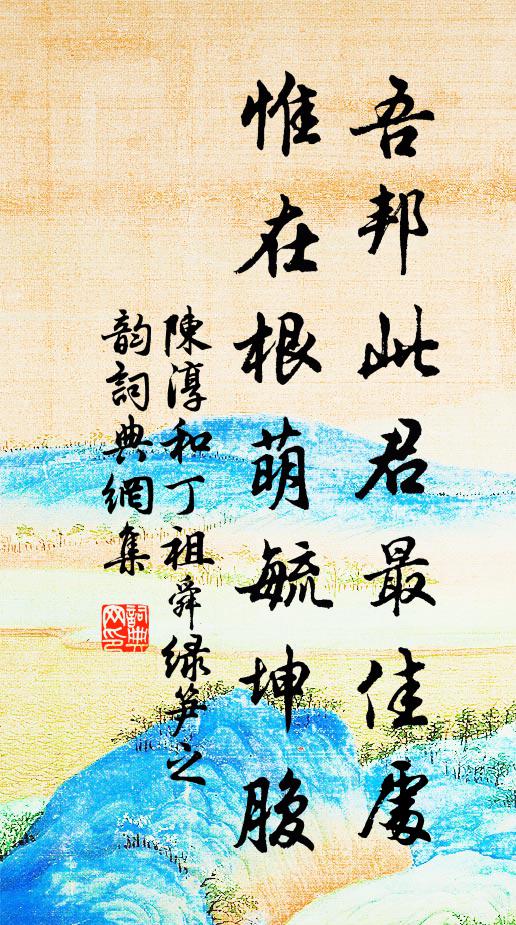 吾邦此君最佳處
惟在根萌毓坤腹
陳淳和丁祖舜緑笋之
韵詞典網集
詞典
网印